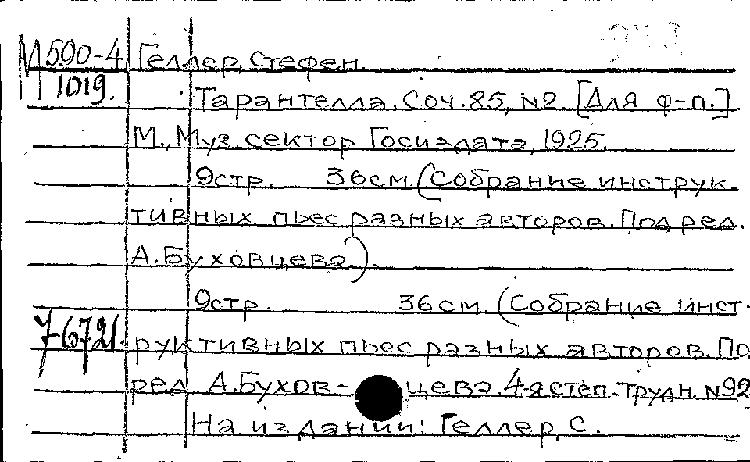 М 590-4 Геллер, Стефен.
1019. Тарантелла. Соч. 85, №2. [Для ф-п.]
М., Муз. сектор Госиздата, 1925.
9стр. 36см. (Собрание инструк-
тивных пьес разных авторов. Под ред.
А. Буховцева).
9стр. 36см. (Собрание инст-
7-6721. руктивных пьес разных авторов. По
ред А. Бухов- цева. 4-я степ. трудн. №92
На издании: Геллер, С.